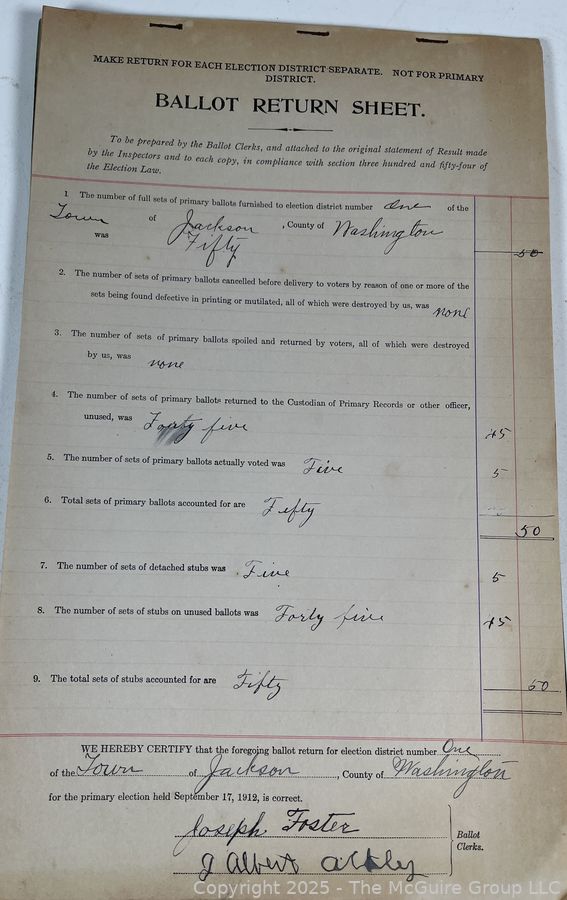 MAKE RETURN FOR EACH ELECTION DISTRICT SEPARATE. NOT FOR PRIMARY
DISTRICT.
BALLOT RETURN SHEET.
To be prepared by the Ballot Clerks, and attached to the original statement of Result made
by the Inspectors and to each copy, in compliance with section three hundred and fifty-four of
the Election Law.
1 The number of full sets of primary ballots furnished to election district number One of the
Town of Jackson, County of Washington
was Fifty 50
2. The number of sets of primary ballots cancelled before delivery to voters by reason of one or more of the
sets being found defective in printing or mutilated, all of which were destroyed by us, was none
3. The number of sets of primary ballots spoiled and returned by voters, all of which were destroyed
by us, was none
4. The number of sets of primary ballots returned to the Custodian of Primary Records or other officer,
unused, was Forty five 45
5. The number of sets of primary ballots actually voted was Five 5
6. Total sets of primary ballots accounted for are Fifty
50
7. The number of sets of detached stubs was Five 5
8. The number of sets of stubs on unused ballots was Forty five 45
9. The total sets of stubs accounted for are Fifty 50
WE HEREBY CERTIFY that the foregoing ballot return for election district number One
of the Town of Jackson, County of Washington
for the primary election held September 17, 1912, is correct.
Joseph Foster
J Albert
Ballot
Clerks.
Copyright 2025 - The McGuire Group LLC